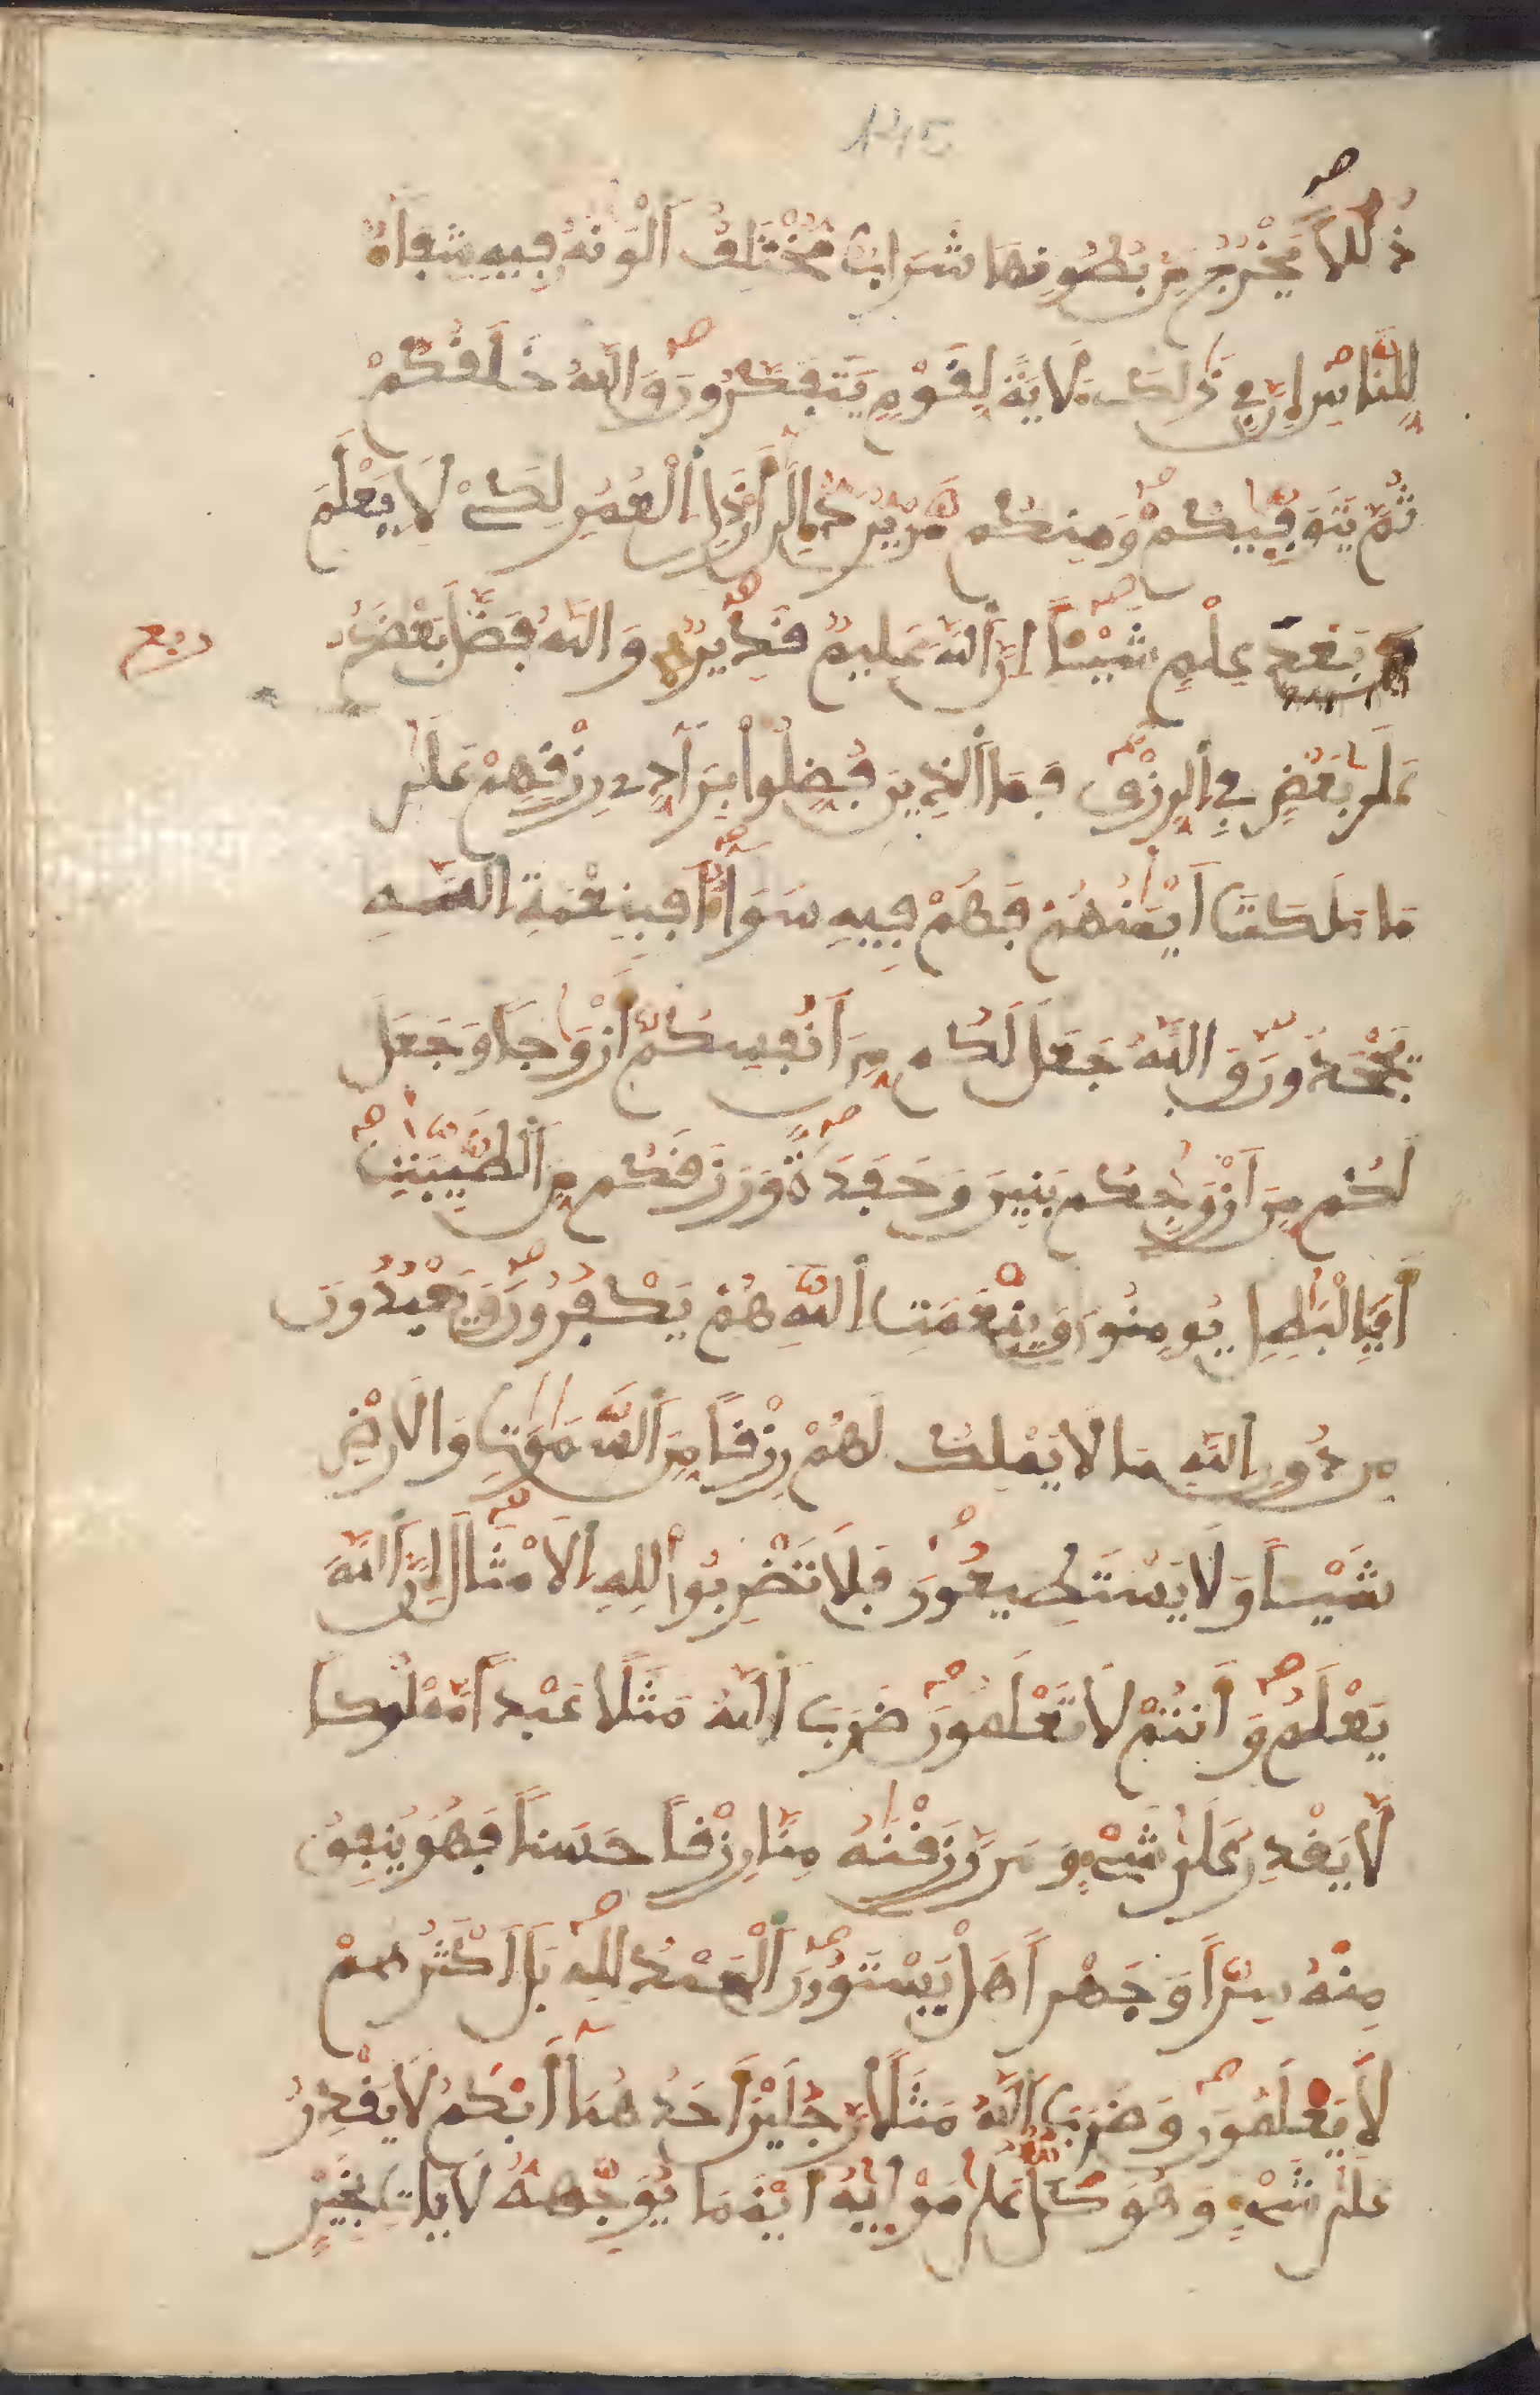 145
ذُلُلاً يَخْرُجُ مِنۢ بُطُونِهَا شَرَابٌ مُّخْتَلِفٌ اَلْوَٰنُهُۥ فِيهِ شِفَآءٌ
لِّلنَّاسِ إِنَّ فِے ذَٰلِكَ ءَلَايَةً لِّقَوْمٍ يَتَفَكَّرُونَ وَاللَّهُ خَلَقَكُمْ
ثُمَّ يَتَوَفّٰيكُمْ وَمِنكُم مَّنْ يُّرَدُّ إِلَىٰ أَرْذَلِ اِ۬لْعُمُرِ لِكَےْ لَا يَعْلَمَ
بَعْدَ عِلْمٍ شَيْـاً اِنَّ اَللَّهَ عَلِيمٌ قَدِيرٌ وَاللَّهُ فَضَّلَ بَعْضَكُمْ
عَلَىٰ بَعْضٍ فِے اِ۬لرِّزْقِ فَمَا اَ۬لذِينَ فُضِّلُوا بِرَآدِّے رِزْقِهِمْ عَلَىٰ
مَا مَلَكَتَ اَيْمَٰنُهُمْ فَهُمْ فِيهِ سَوَآءٌ اَفَبِنِعْمَةِ اِ۬للَّهِ
يَجْحَدُونَ وَاللَّهُ جَعَلَ لَكُم مِّنَ اَنفُسِكُمُ أَزْوَٰجاً وَجَعَلَ
لَكُم مِّنَ اَزْوَٰجِكُم بَنِينَ وَحَفَدَةً وَرَزَقَكُم مِّنَ اَ۬لطَّيِّبَٰتِ
أَفَبِالْبَٰطِلِ يُومِنُونَ وَبِنِعْمَتِ اِ۬للَّهِ هُمْ يَكْفُرُونَ وَيَعْبُدُونَ
مِن دُونِ اِ۬للَّهِ مَا لَا يَمْلِكُ لَهُمْ رِزْقاً مِّنَ اَ۬لسَّمَٰوَٰتِ وَالَارْضِ
شَيْـاً وَلَا يَسْتَطِيعُونَ فَلَا تَضْرِبُوا لِلهِ اِ۬لَامْثَالَ إِنَّ اَ۬للَّهَ
يَعْلَمُ وَأَنتُمْ لَا تَعْلَمُونَ ضَرَبَ اَ۬للَّهُ مَثَلًا عَبْداً مَّمْلُوكاً
لَّا يَقْدِرُ عَلَىٰ شَےْءٍ وَمَن رَّزَقْنَٰهُ مِنَّا رِزْقاً حَسَناً فَهُوَ يُنفِقُ
مِنْهُ سِرّاً وَجَهْراً هَلْ يَسْتَوُۥنَ اَ۬لْحَمْدُ لِلهِ بَلَ اَكْثَرُهُمْ
لَا يَعْلَمُونَ وَضَرَبَ اَ۬للَّهُ مَثَلًا رَّجُلَيْنِ أَحَدُهُمَا أَبْكَمُ لَا يَقْدِرُ
عَلَىٰ شَےْءٍ وَهُوَ كَلٌّ عَلَىٰ مَوْلٰيهُ أَيْنَمَا يُوَجِّههُّ لَا يَاتِ بِخَيْرٍ
ربع